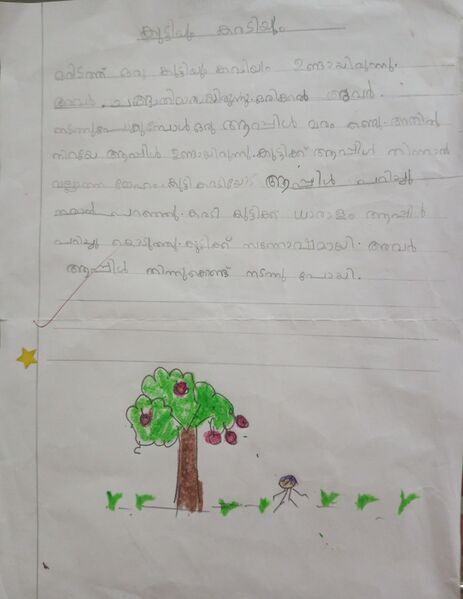 കുട്ടിയും കരടിയും
ഒരിടത്ത് ഒരു കുട്ടിയും കരടിയും ഉണ്ടായിരുന്നു.
അവർ ചങ്ങാതിമാരായിരുന്നു. ഒരിക്കൽ അവർ
നടന്നുപോകുമ്പോൾ ഒരു ആപ്പിൾ മരം കണ്ടു. അതിൽ
നിറയെ ആപ്പിൾ ഉണ്ടായിരുന്നു. കുട്ടിക്ക് ആപ്പിൾ തിന്നാൻ
വല്ലാത്ത മോഹം. കുട്ടി കരടിയോട് ആപ്പിൾ പറിച്ചു
തരാൻ പറഞ്ഞു. കരടി കുട്ടിക്ക് ധാരാളം ആപ്പിൾ
പറിച്ചു കൊടുത്തു. കുട്ടിക്ക് സന്തോഷമായി. അവർ
ആപ്പിൾ തിന്നുകൊണ്ട് നടന്നു പോയി.